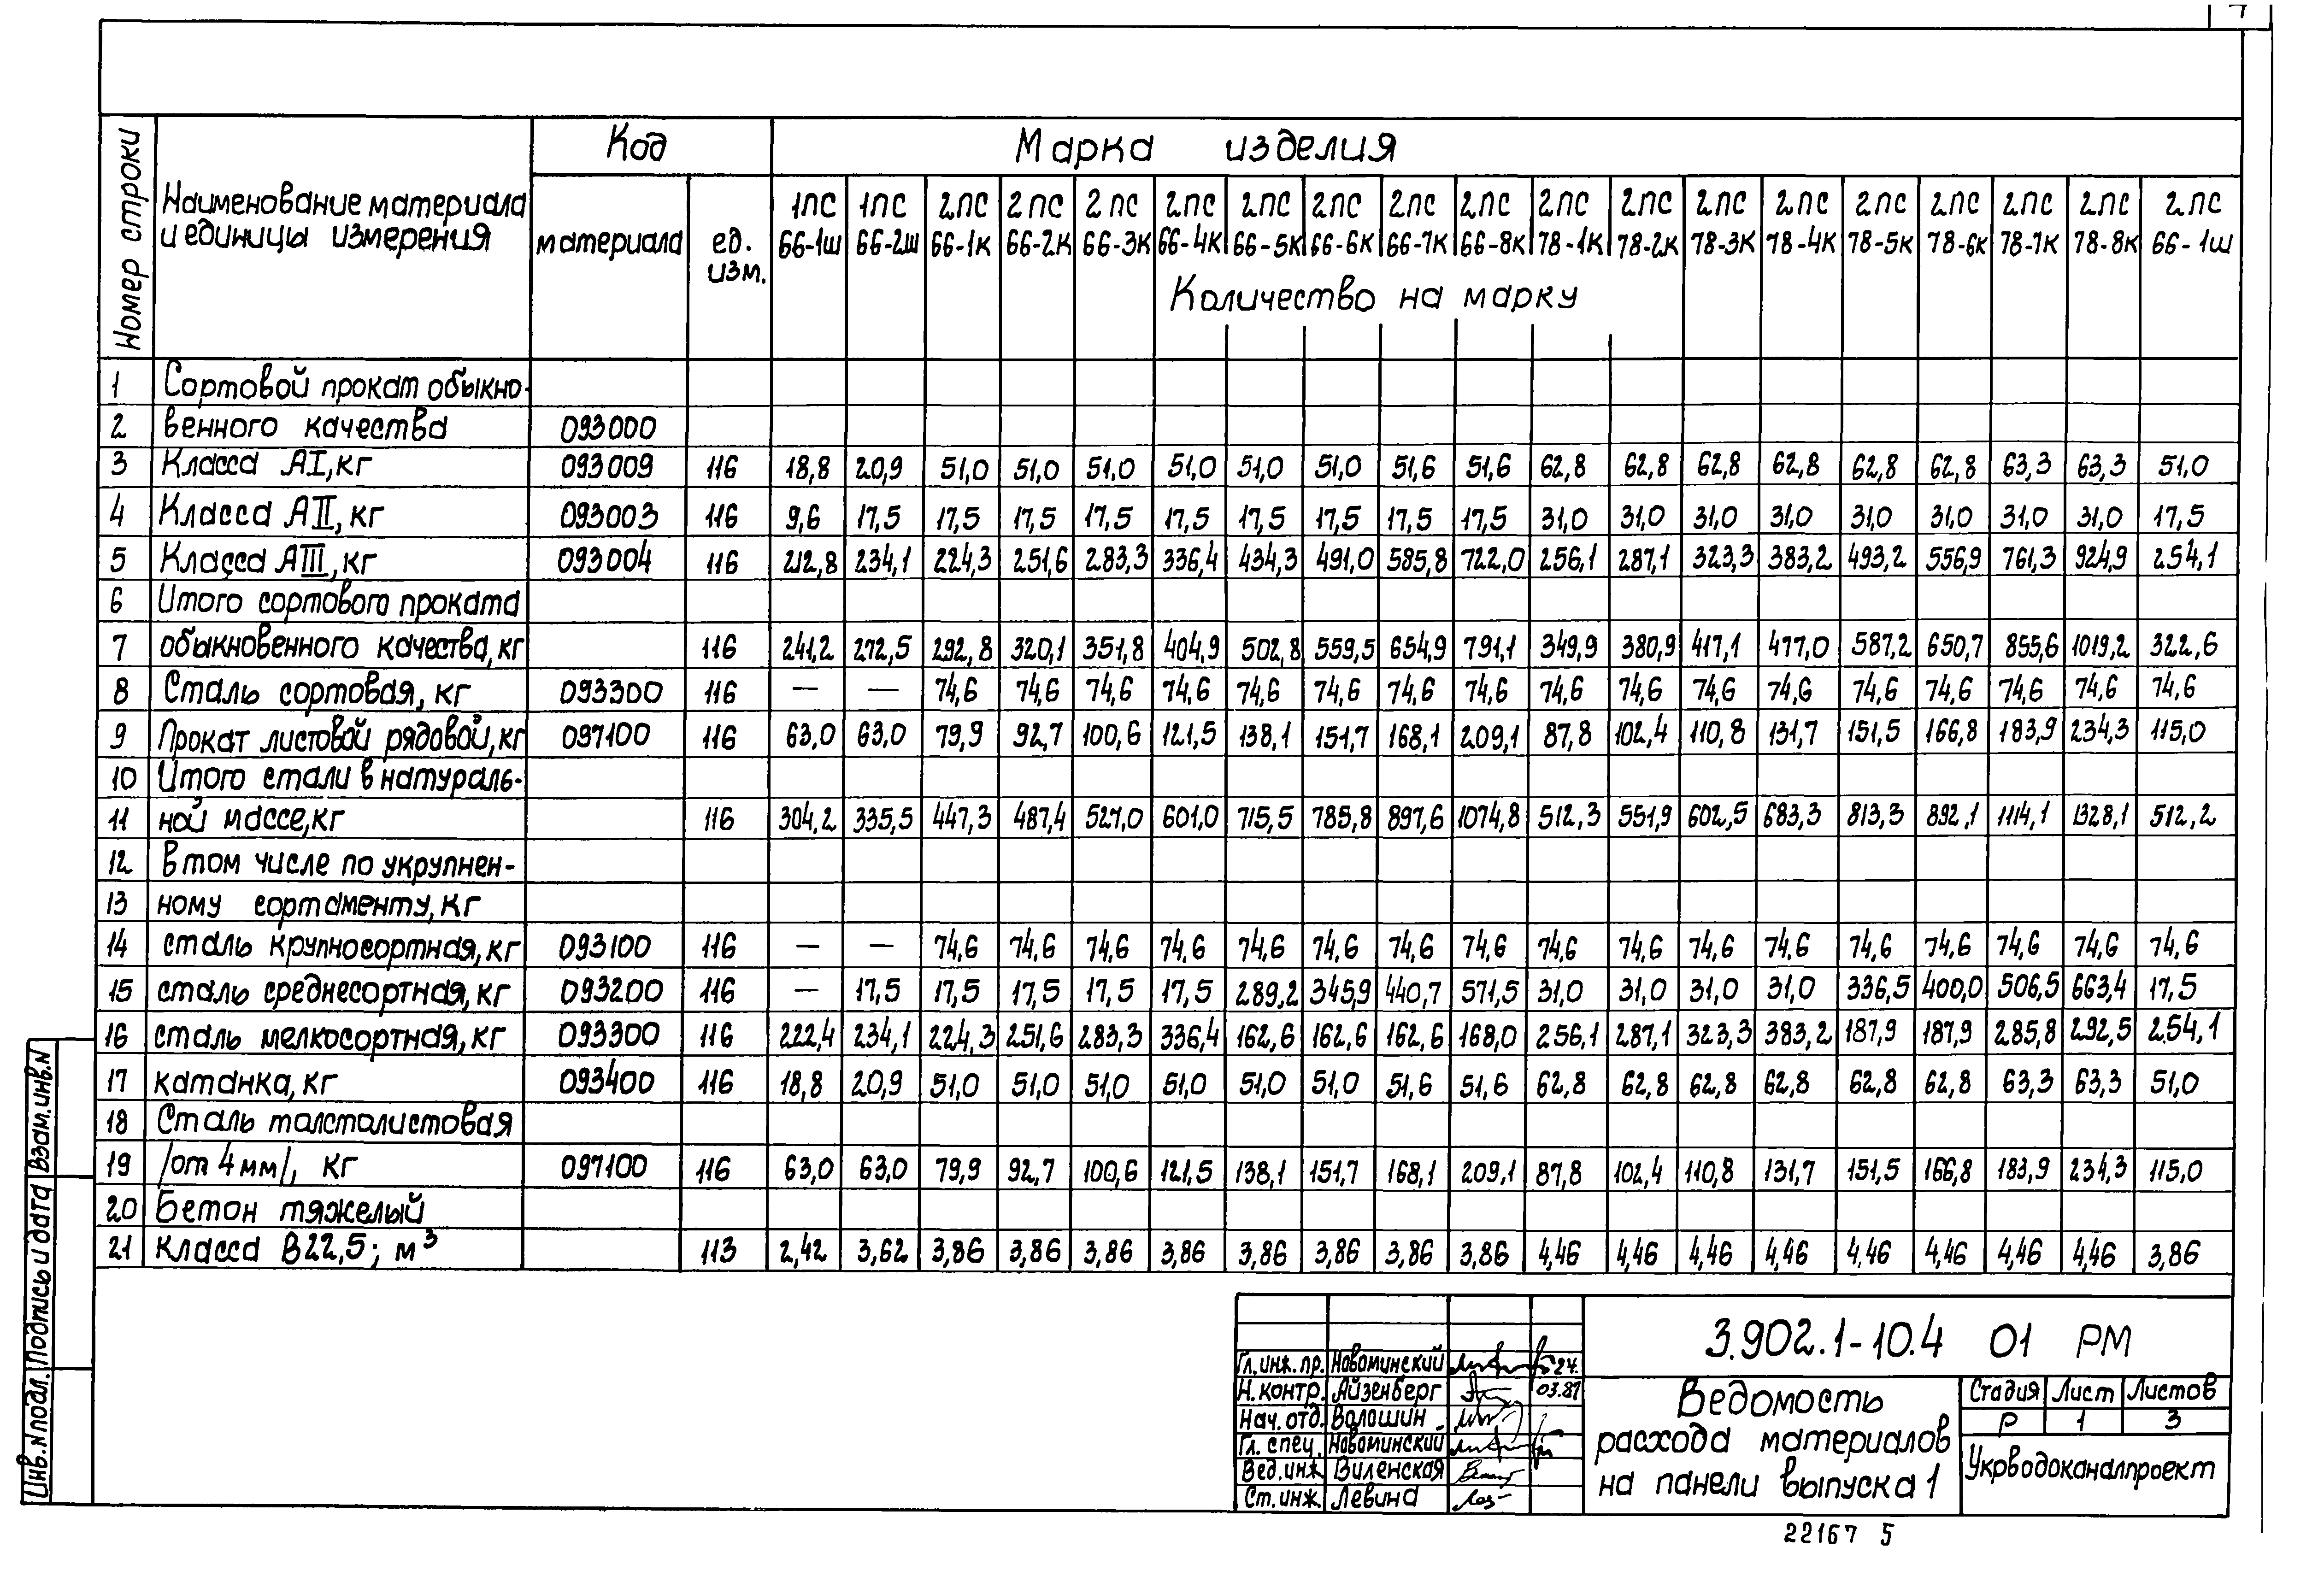 Номер строки
Наименование материала
и единицы измерения
Код
материала
ед.
изм.
Марка изделия
1ПС 1ПС 2ПС 2ПС 2ПС 2ПС 2ПС 2ПС 2ПС 2ПС 2ПС 2ПС 2ПС 2ПС 2ПС 2ПС 2ПС 2ПС 2ПС
66-1ш 66-2ш 66-1к 66-2к 66-3к 66-4к 66-5к 66-6к 66-7к 66-8к 78-1к 78-2к 78-3к 78-4к 78-5к 78-6к 78-7к 78-8к 66-1ш
Количество на марку
1 Сортовой прокат обыкно-
2 венного качества 093000
3 Класса АI, кг 093009 116 18,8 20,9 51,0 51,0 51,0 51,0 51,0 51,0 51,6 51,6 62,8 62,8 62,8 62,8 62,8 62,8 63,3 63,3 51,0
4 Класса АII, кг 093003 116 9,6 17,5 17,5 17,5 17,5 17,5 17,5 17,5 17,5 17,5 31,0 31,0 31,0 31,0 31,0 31,0 31,0 31,0 17,5
5 Класса АIII, кг 093004 116 212,8 234,1 224,3 251,6 283,3 336,4 434,3 491,0 585,8 722,0 256,1 287,1 323,3 383,2 493,2 556,9 761,3 924,9 254,1
6 Итого сортового проката
7 обыкновенного качества, кг 116 241,2 272,5 292,8 320,1 351,8 404,9 502,8 559,5 654,9 791,1 349,9 380,9 417,1 477,0 587,2 650,7 855,6 1019,2 322,6
8 Сталь сортовая, кг 093300 116 — — 74,6 74,6 74,6 74,6 74,6 74,6 74,6 74,6 74,6 74,6 74,6 74,6 74,6 74,6 74,6 74,6 74,6
9 Прокат листовой рядовой, кг 097100 116 63,0 63,0 79,9 92,7 100,6 121,5 138,1 151,7 168,1 209,1 87,8 102,4 110,8 131,7 151,5 166,8 183,9 234,3 115,0
10 Итого стали в натураль-
11 ной массе, кг 116 304,2 335,5 447,3 487,4 527,0 601,0 715,5 785,8 897,6 1074,8 512,3 551,9 602,5 683,3 813,3 892,1 1114,1 1328,1 512,2
12 В том числе по укрупнен-
13 ному сортаменту, кг
14 сталь крупносортная, кг 093100 116 — — 74,6 74,6 74,6 74,6 74,6 74,6 74,6 74,6 74,6 74,6 74,6 74,6 74,6 74,6 74,6 74,6 74,6
15 сталь среднесортная, кг 093200 116 — 17,5 17,5 17,5 17,5 17,5 289,2 345,9 440,7 571,5 31,0 31,0 31,0 31,0 336,5 400,0 506,5 663,4 17,5
16 сталь мелкосортная, кг 093300 116 222,4 234,1 224,3 251,6 283,3 336,4 162,6 162,6 162,6 168,0 256,1 287,1 323,3 383,2 187,9 187,9 285,8 292,5 254,1
17 катанка, кг 093400 116 18,8 20,9 51,0 51,0 51,0 51,0 51,0 51,0 51,6 51,6 62,8 62,8 62,8 62,8 62,8 62,8 63,3 63,3 51,0
18 Сталь толстолистовая
19 /от 4 мм/, кг 097100 116 63,0 63,0 79,9 92,7 100,6 121,5 138,1 151,7 168,1 209,1 87,8 102,4 110,8 131,7 151,5 166,8 183,9 234,3 115,0
20 Бетон тяжелый
21 класса В22,5; м³ 113 2,42 3,62 3,86 3,86 3,86 3,86 3,86 3,86 3,86 3,86 4,46 4,46 4,46 4,46 4,46 4,46 4,46 4,46 3,86
Инв.N подл. Подпись и дата Взам.инв.N
Гл. инж. пр. Новоминский 24.
Н. контр. Айзенберг 03.87
Нач. отд. Волошин
Гл. спец. Новоминский
Вед. инж. Виленская
Ст. инж. Левина
3.902.1-10.4 01 РМ
Ведомость
расхода материалов
на панели выпуска 1
Стадия Лист Листов
Р 1 3
Укрводоканалпроект
22167 5